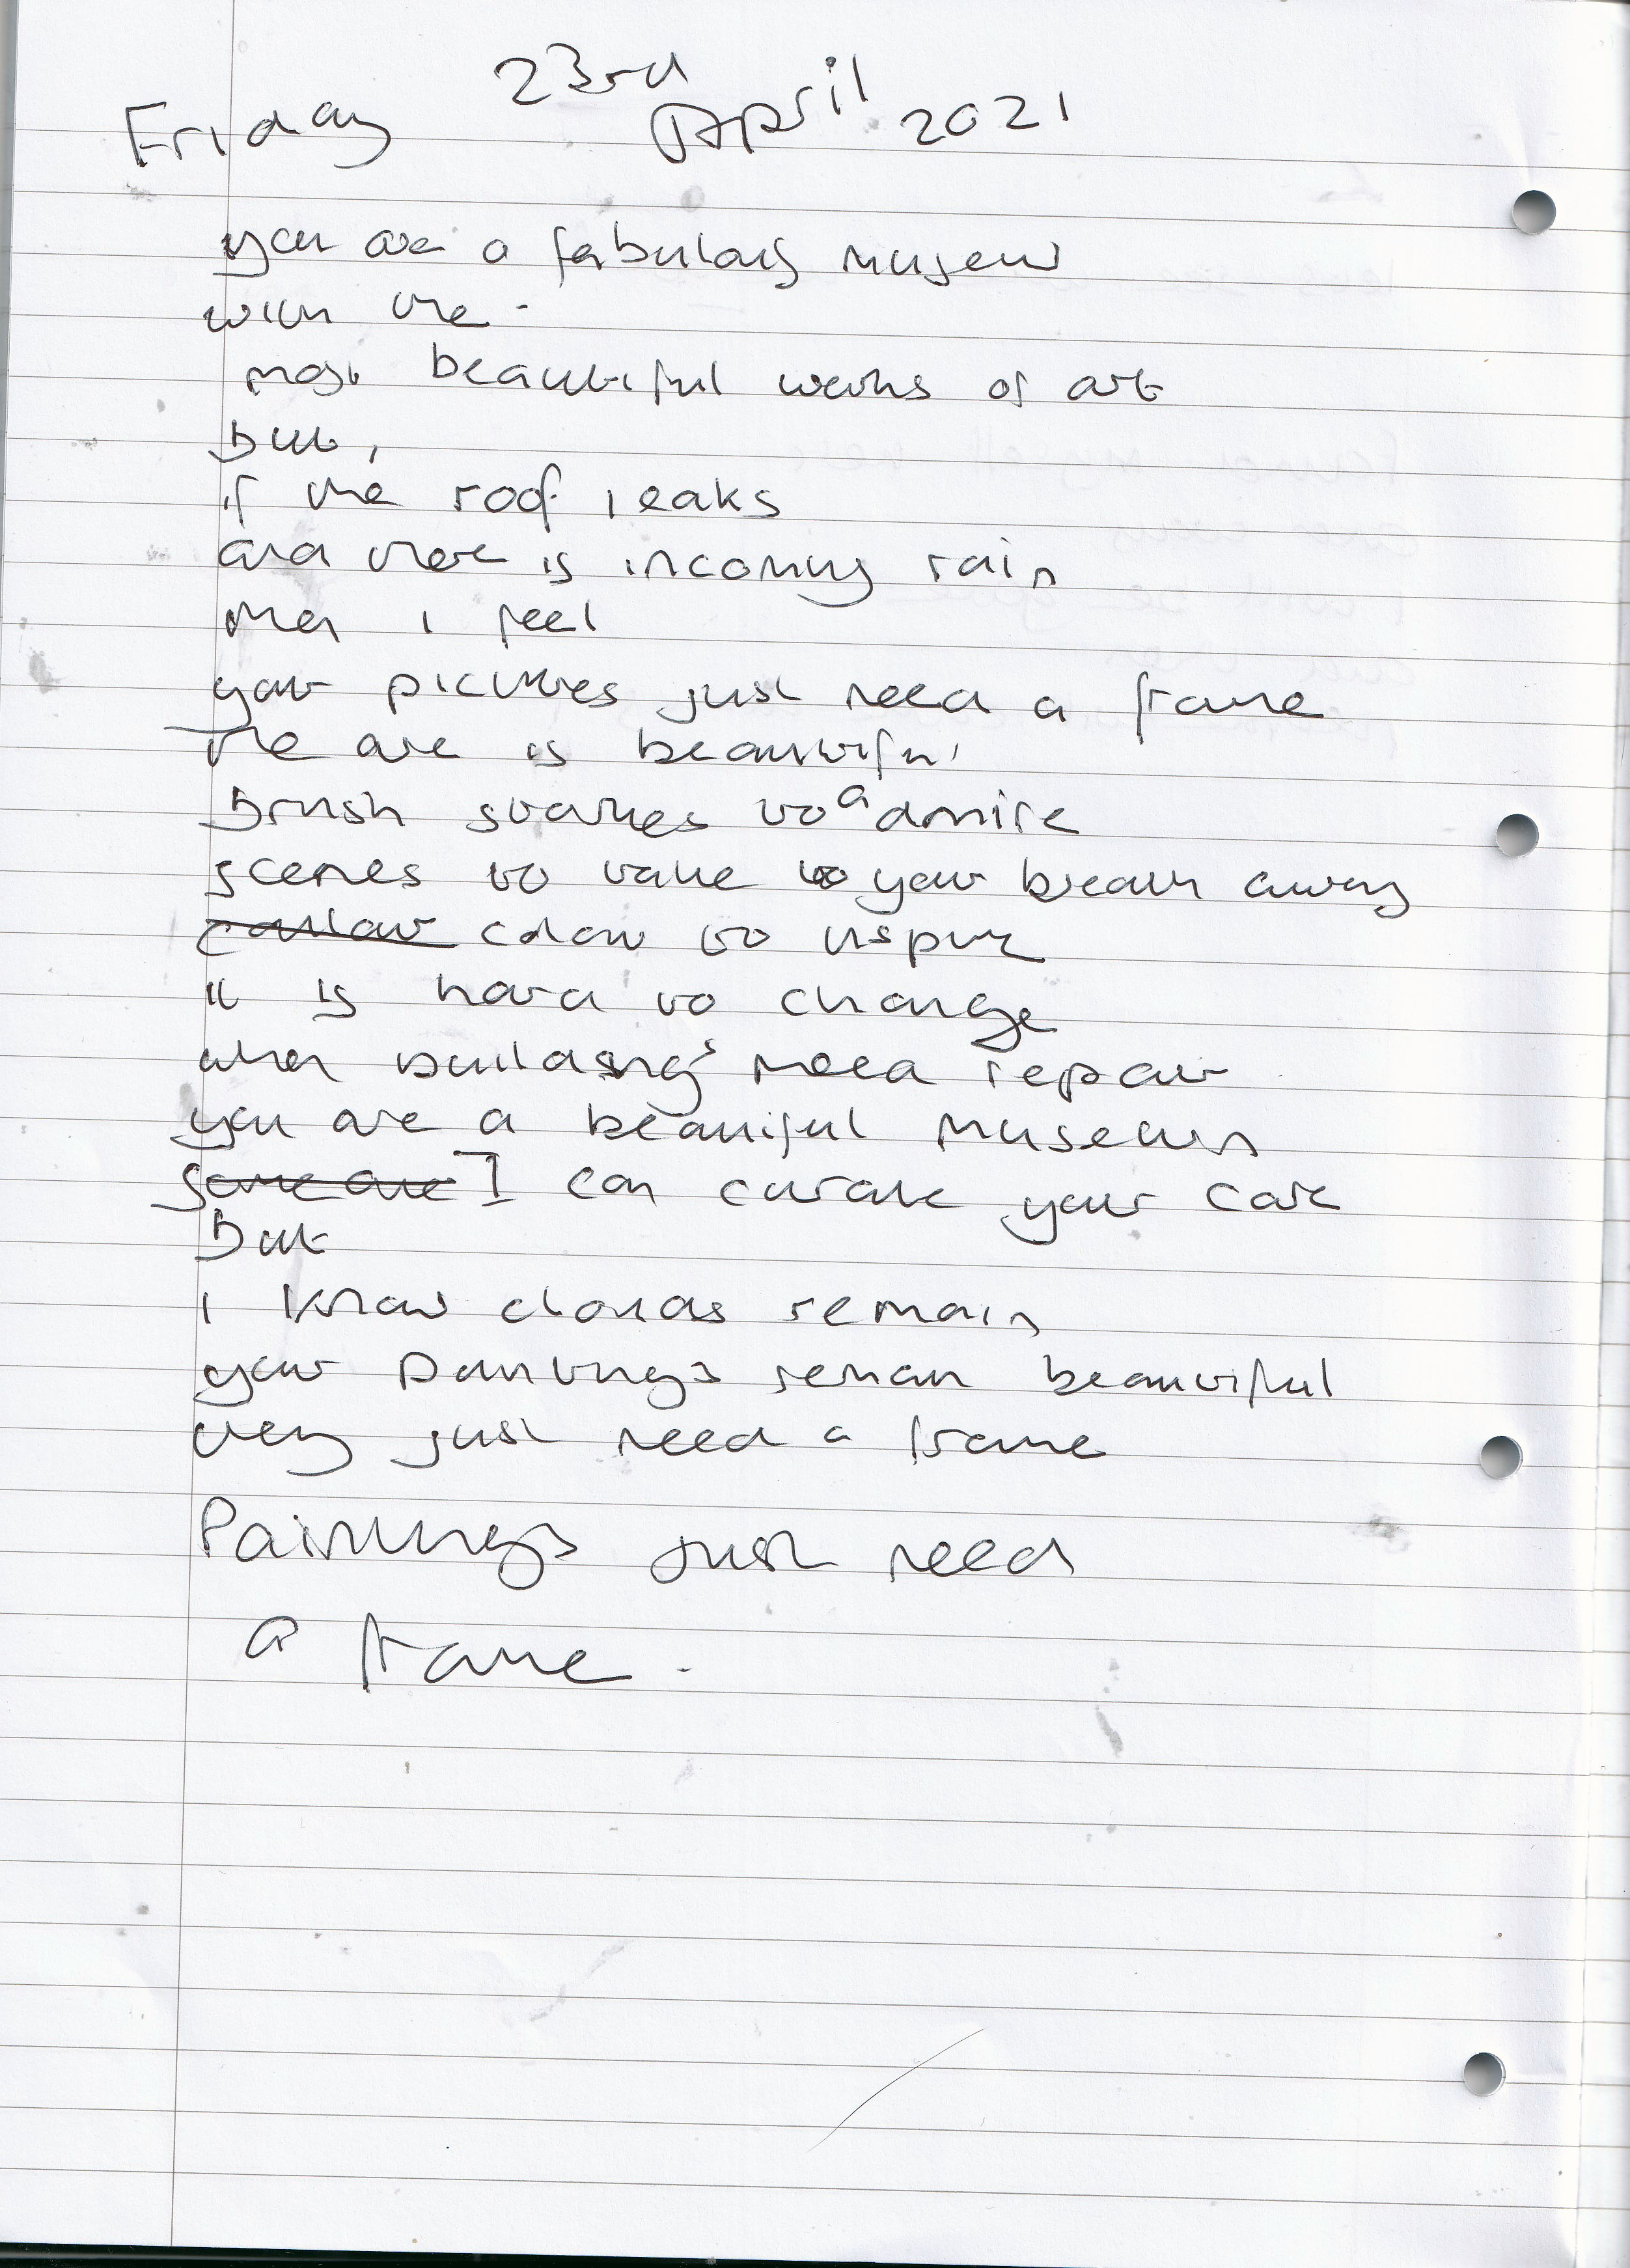 Friday 23rd April 2021
you are a fabulous museum
with the
most beautiful works of art
But,
if the roof leaks
and there is incoming rain
then i feel
your pictures just need a frame
the are is beautiful
Brush strokes to admire
scenes to take to your breath away
colour colour to inspire
it is hard to change
when buildings need repair
you are a beautiful museum
someone I can curate your care
But
i know clouds remain
your paintings remain beautiful
they just need a frame
Paintings just need
a frame.